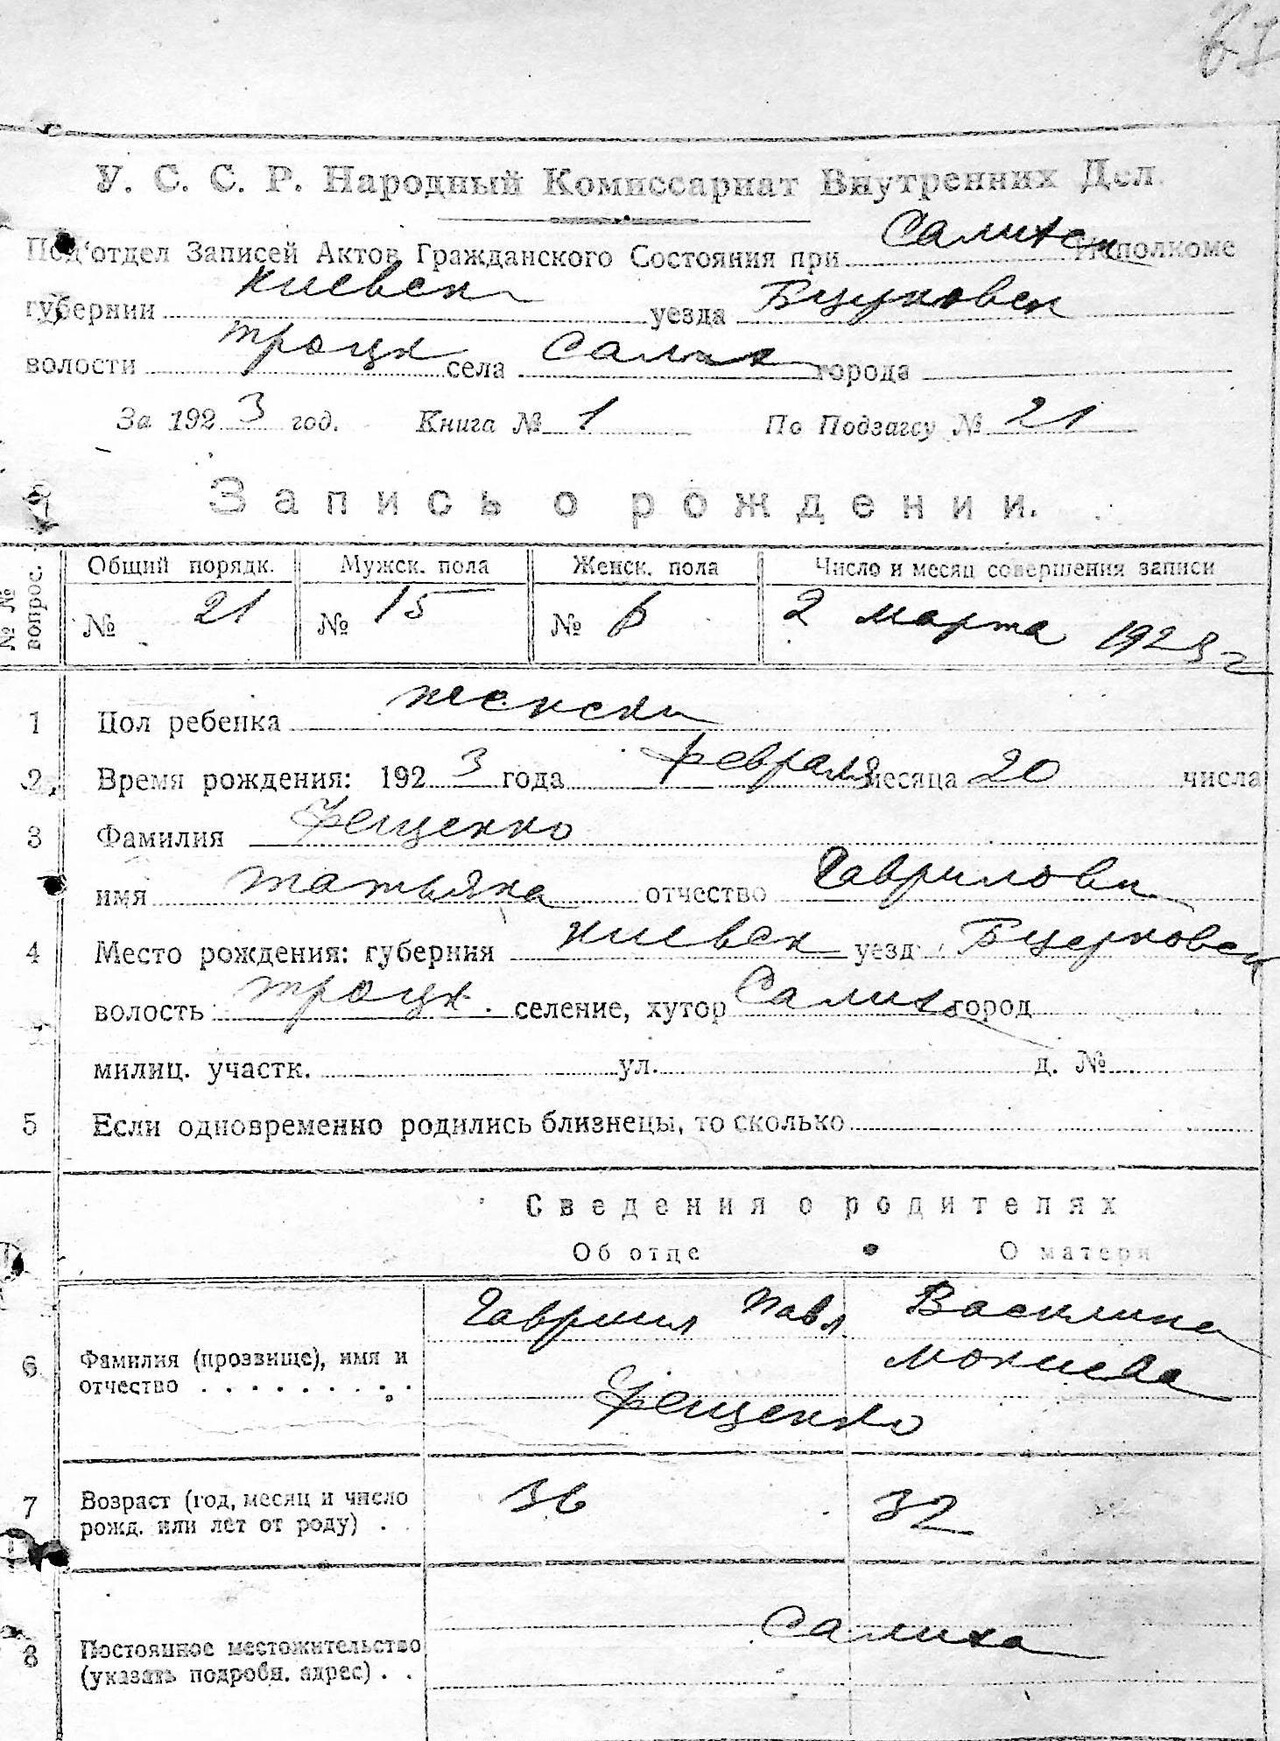 У. С. С. Р. Народный Комиссариат Внутренних Дел.
Под‘отдел Записей Актов Гражданского Состояния при Салихск Исполкоме
губернии Киевск уезда Бцерковск
волости Троцк села Салиха города
За 1923 год. Книга № 1 По Подзагсу № 21
Запись о рождении.
№ № вопрос.
Общий порядк. Мужск. пола Женск. пола Число и месяц совершения записи
№ 21 № 15 № 6 2 марта 1923 г
1 Пол ребенка женски
2 Время рождения: 1923 года февраля месяца 20 числа
3 Фамилия Фещенко
имя Татьяна отчество Гавриловн
4 Место рождения: губерния Киевск уезд Бцерковск
волость Троцк. селение, хутор Салиха город
милиц. участк. ул. д. №
5 Если одновременно родились близнецы, то сколько
Сведения о родителях
Об отце О матери
6 Фамилия (прозвище), имя и отчество Гавриил Павл Василина
Мокиева
Фещенко
7 Возраст (год, месяц и число рожд. или лет от роду) . . 36 32
8 Постоянное местожительство (указать подробн. адрес) . . Салиха